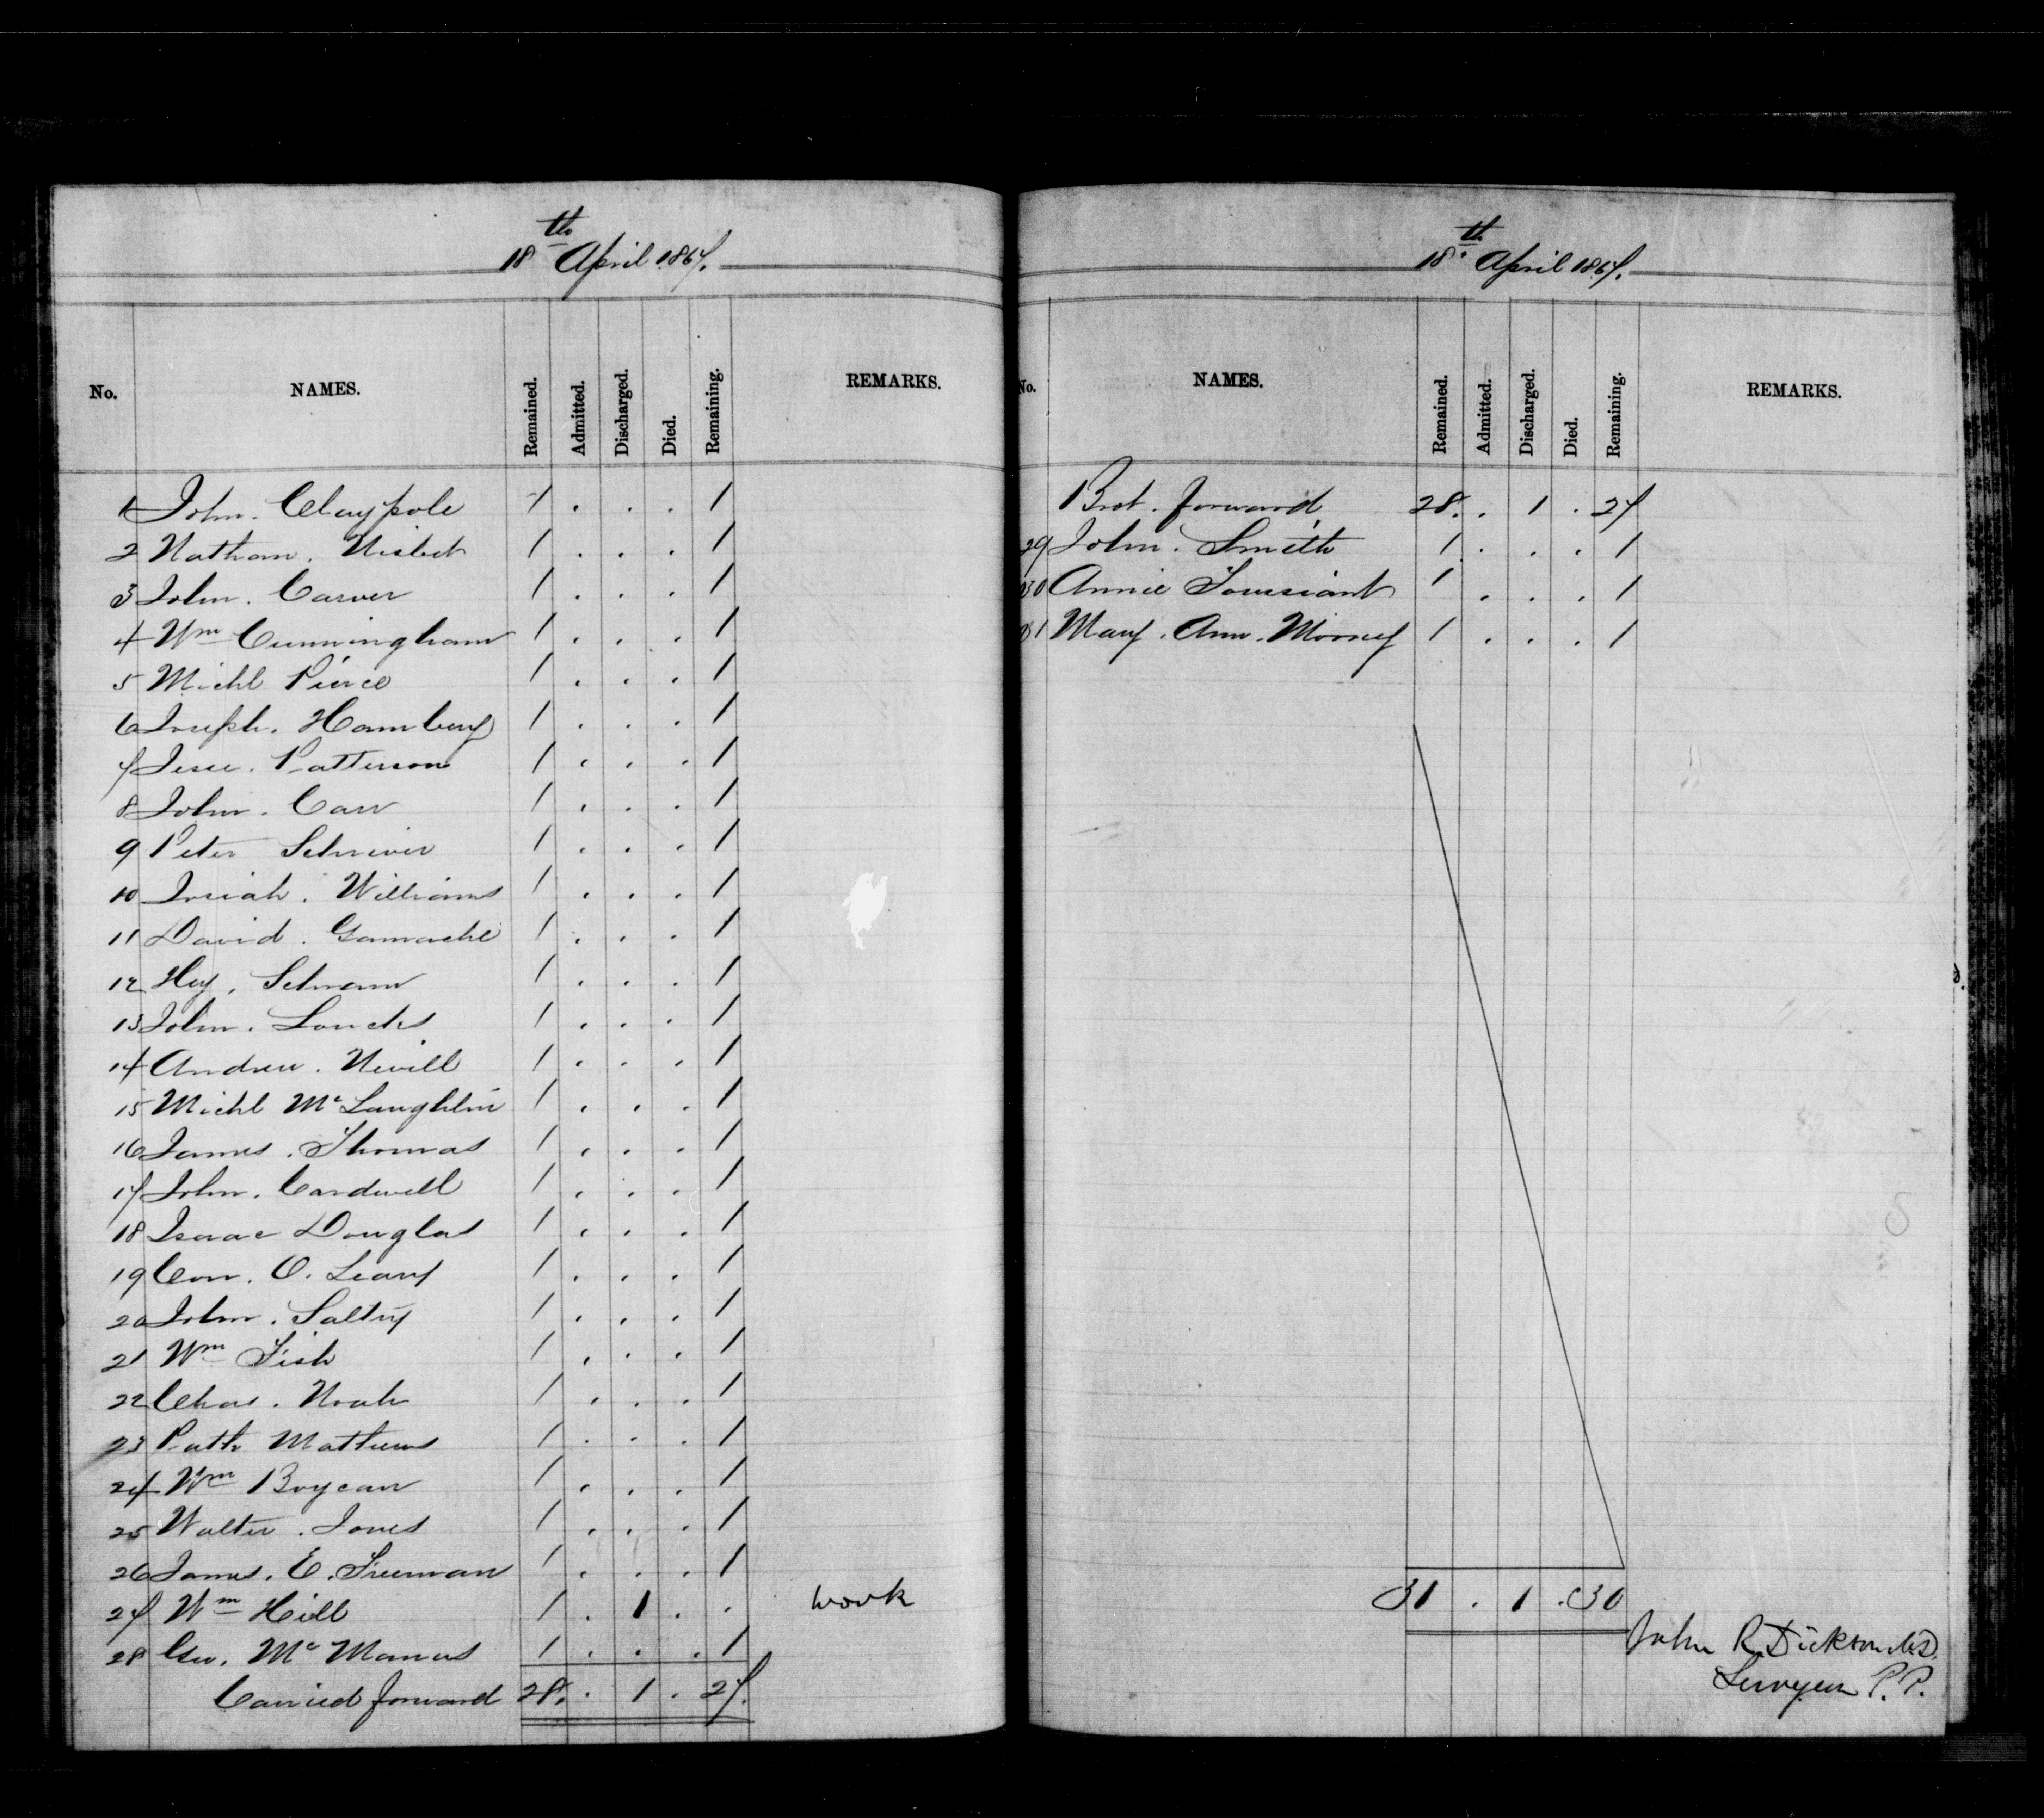 18th April 1867.
No. NAMES. Remained. Admitted. Discharged. Died. Remaining. REMARKS.
1 John. Claypole 1 . . . 1
2 Nathan. Nisbet 1 . . . 1
3 John. Carver 1 . . . 1
4 Wm Cunningham 1 . . . 1
5 Michl Pierce 1 . . . 1
6 Joseph. Hambury 1 . . . 1
7 Jesse. Patterson 1 . . . 1
8 John. Carr 1 . . . 1
9 Peter Schriver 1 . . . 1
10 Josiah. Williams 1 . . . 1
11 David. Gamache 1 . . . 1
12 Hy. Schram 1 . . . 1
13 John. Loucks 1 . . . 1
14 Andrew. Nevill 1 . . . 1
15 Michl McLaughlin 1 . . . 1
16 James. Thomas 1 . . . 1
17 John. Cardwell 1 . . . 1
18 Isaac Douglas 1 . . . 1
19 Con. O. Leary 1 . . . 1
20 John. Saltry 1 . . . 1
21 Wm Fish 1 . . . 1
22 Chas. Noah 1 . . . 1
23 Patk Mathews 1 . . . 1
24 Wm Boycan 1 . . . 1
25 Walter. Jones 1 . . . 1
26 James. E. Freeman 1 . . . 1
27 Wm Hill 1 . 1 . . work
28 Geo. McManus 1 . . . 1
Carried forward 28. . 1 . 27.
18th April 1867.
No. NAMES. Remained. Admitted. Discharged. Died. Remaining. REMARKS.
Brot. forward 28. . 1 . 27
29 John. Smith 1 . . . 1
30 Annie Toussiant 1 . . . 1
31 Mary. Ann. Mooney 1 . . . 1
31 . 1 . 30
John R. Dickson M.D.
Surgeon P. P.